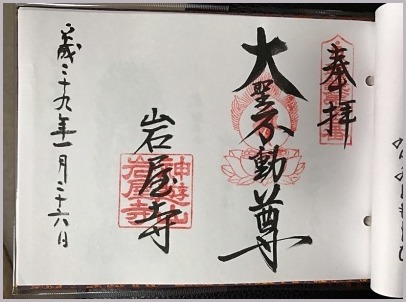 奉拝
大聖不動尊
岩屋寺
神遊山
岩屋寺
平成二十九年一月二十六日